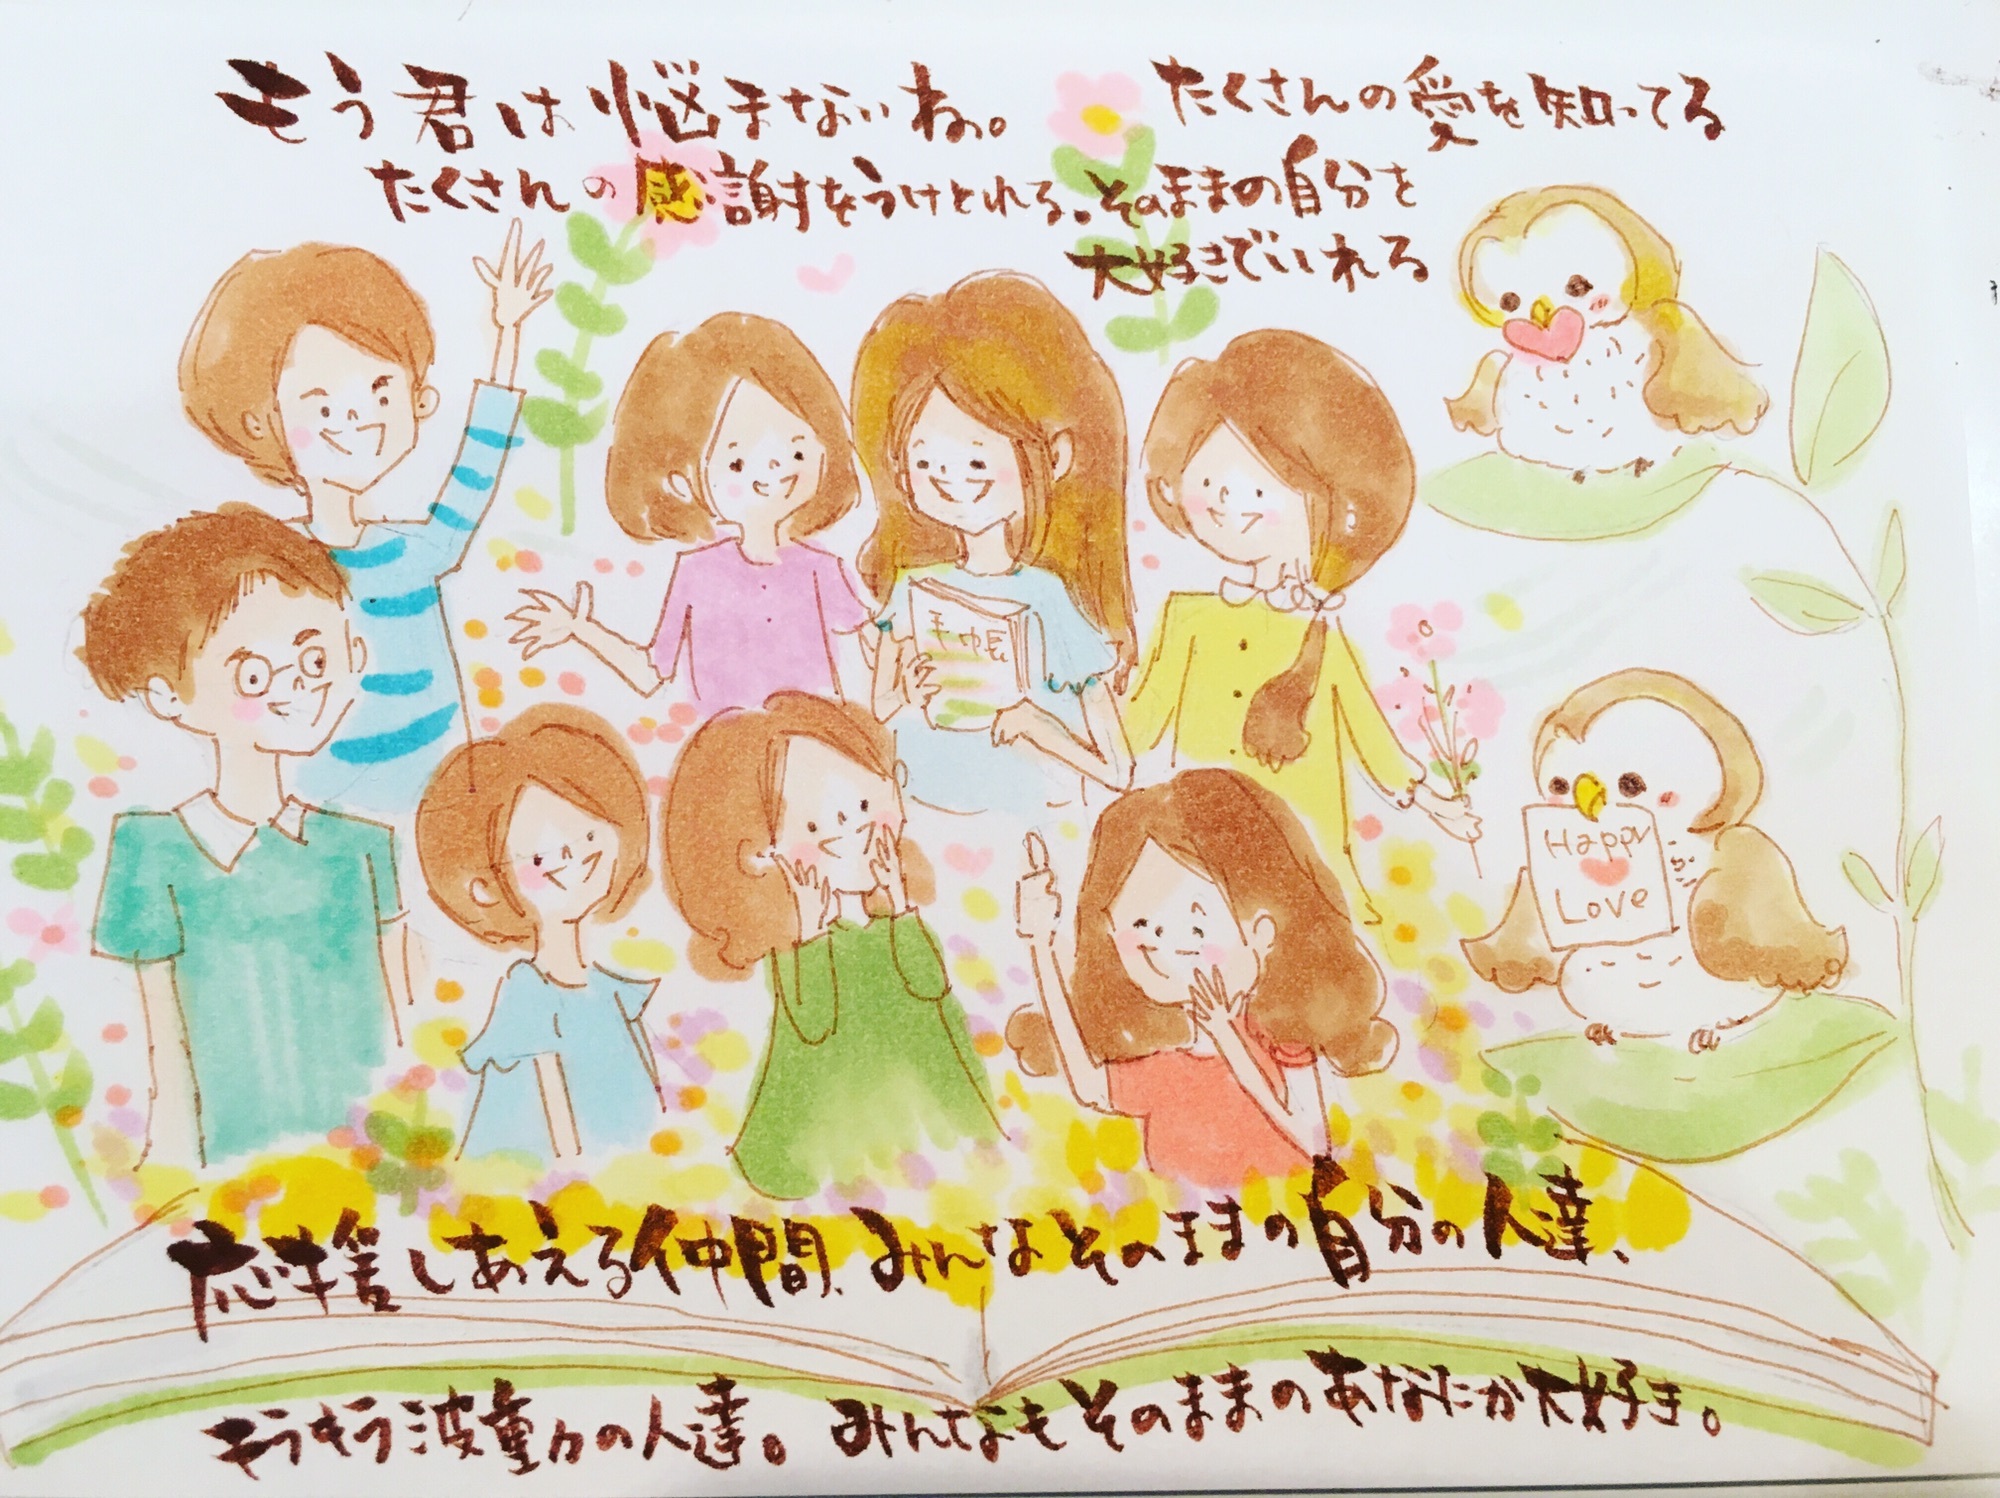 もう君は悩まないね。
たくさんの愛を知ってる
たくさんの感謝をうけとれる。そのままの自分を
大好きでいれる
手帳
Happy
Love
応援しあえる仲間、みんなそのままの自分の人達、
もうもう波動の人達。みんなもそのままのあなたが大好き。